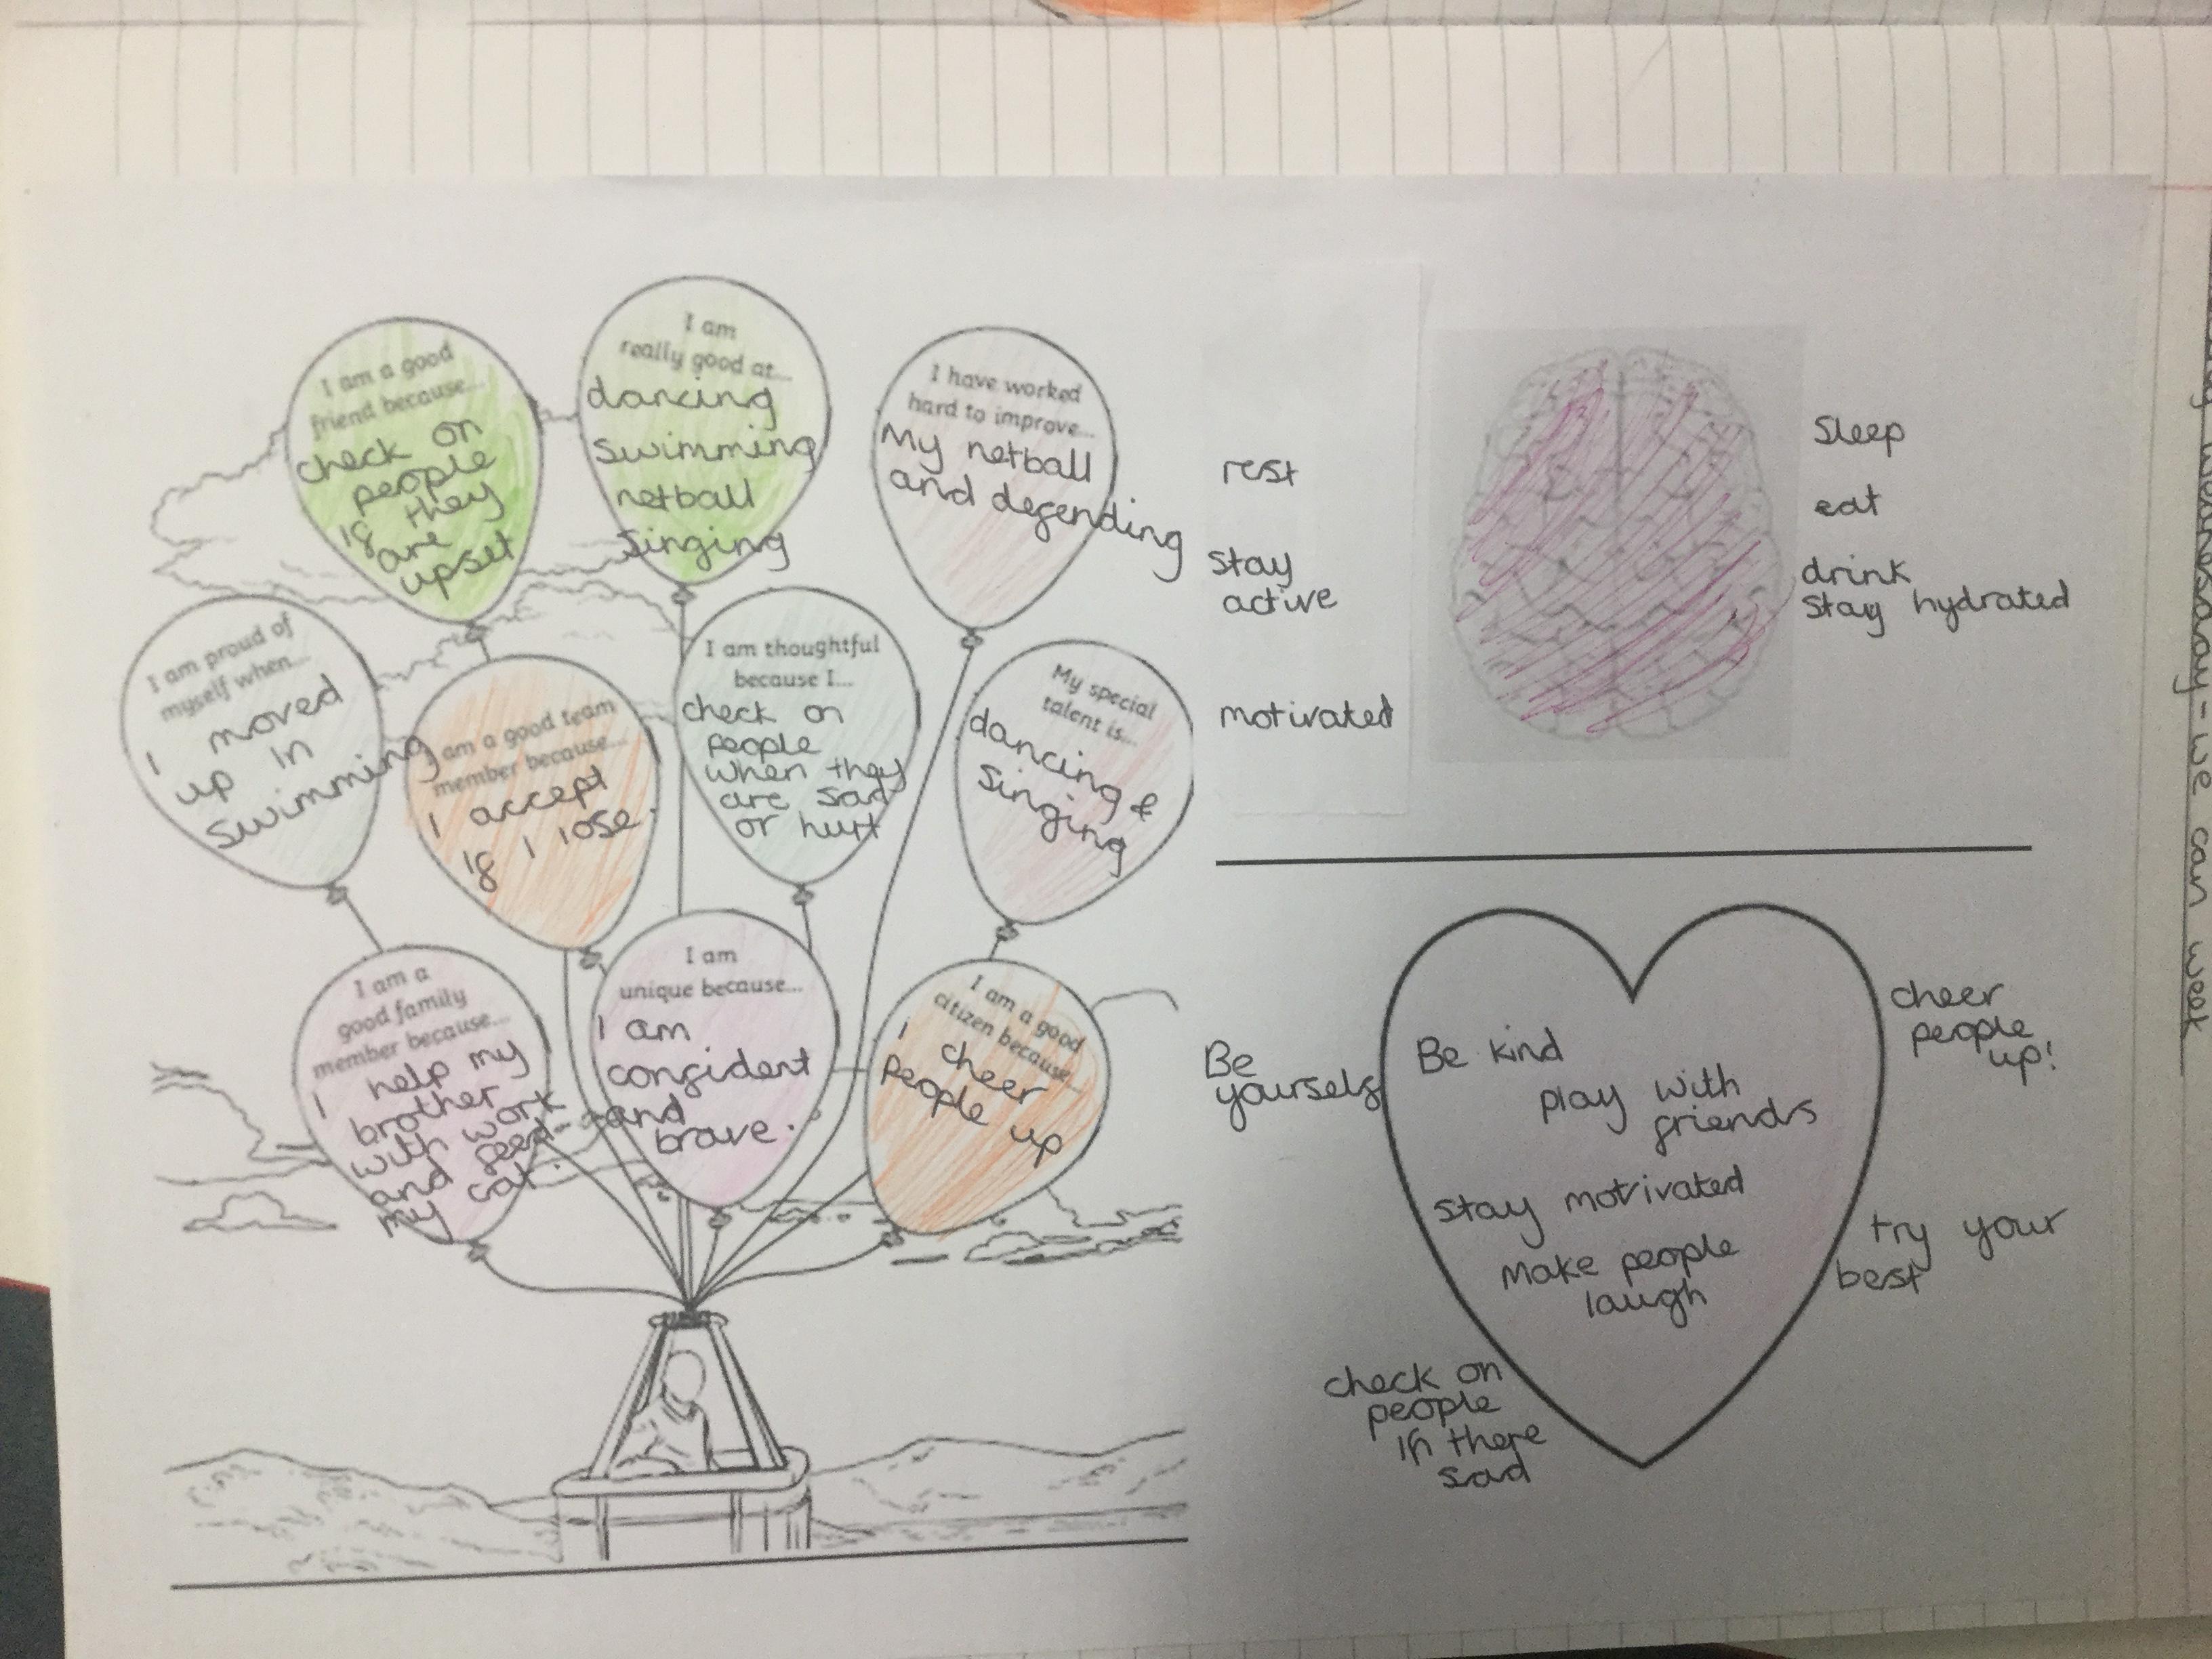 I am a good
friend because...
check on
people
if they
are
upset
I am
really good at...
dancing
swimming
netball
singing
I have worked
hard to improve...
My netball
and defending
I am proud of
myself when...
I moved
up in
swimming
I am a good team
member because...
I accept
if I lose.
I am thoughtful
because I...
check on
people
when they
are sad
or hurt
My special
talent is...
dancing &
singing
I am a
good family
member because...
I help my
brother
with work
and feed
my cat.
I am
unique because...
I am
confident
and
brave.
I am a good
citizen because...
I cheer
people up
rest
stay
active
motivated
Sleep
eat
drink
stay hydrated
Be
yourself
Be kind
play with
friends
stay motivated
Make people
laugh
cheer
people
up!
try your
best
check on
people
if there
sad
we can week